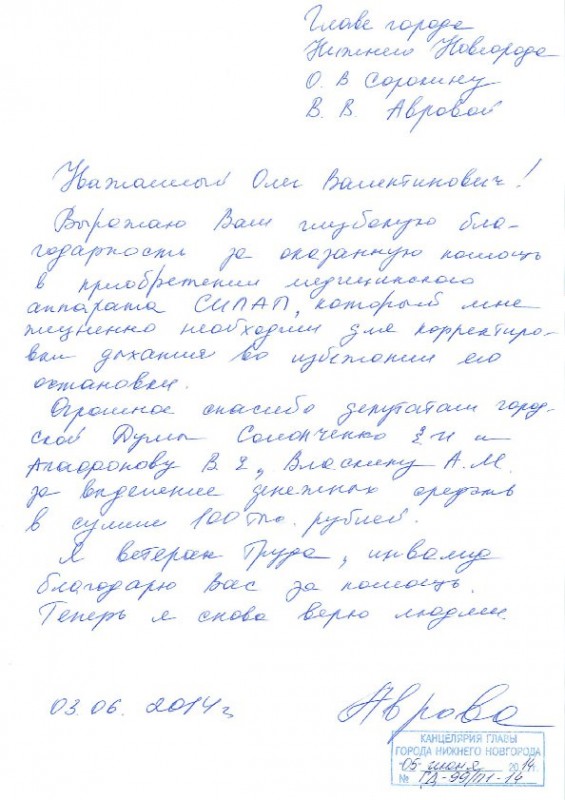 Главе города
Нижнего Новгорода
О. В Сорокину
В. В. Авровой
Уважаемый Олег Валентинович!
Выражаю Вам глубокую бла-
годарность за оказанную помощь
в приобретении медицинского
аппарата СИПАП, который мне
жизненно необходим для корректиро-
вки дыхания во избежании его
остановки.
Огромное спасибо депутатам город-
ской Думы Солонченко и
В. Власкину А.М.
за выделение денежных средств
в сумме 100 тыс. рублей.
Я ветеран Труда, инвалид
благодарю Вас за помощь.
Теперь я снова верю людям.
03.06. 2014г
Аврова
КАНЦЕЛЯРИЯ ГЛАВЫ
ГОРОДА НИЖНЕГО НОВГОРОДА
05 июня 2014г.
№ ГД-99/П1-14